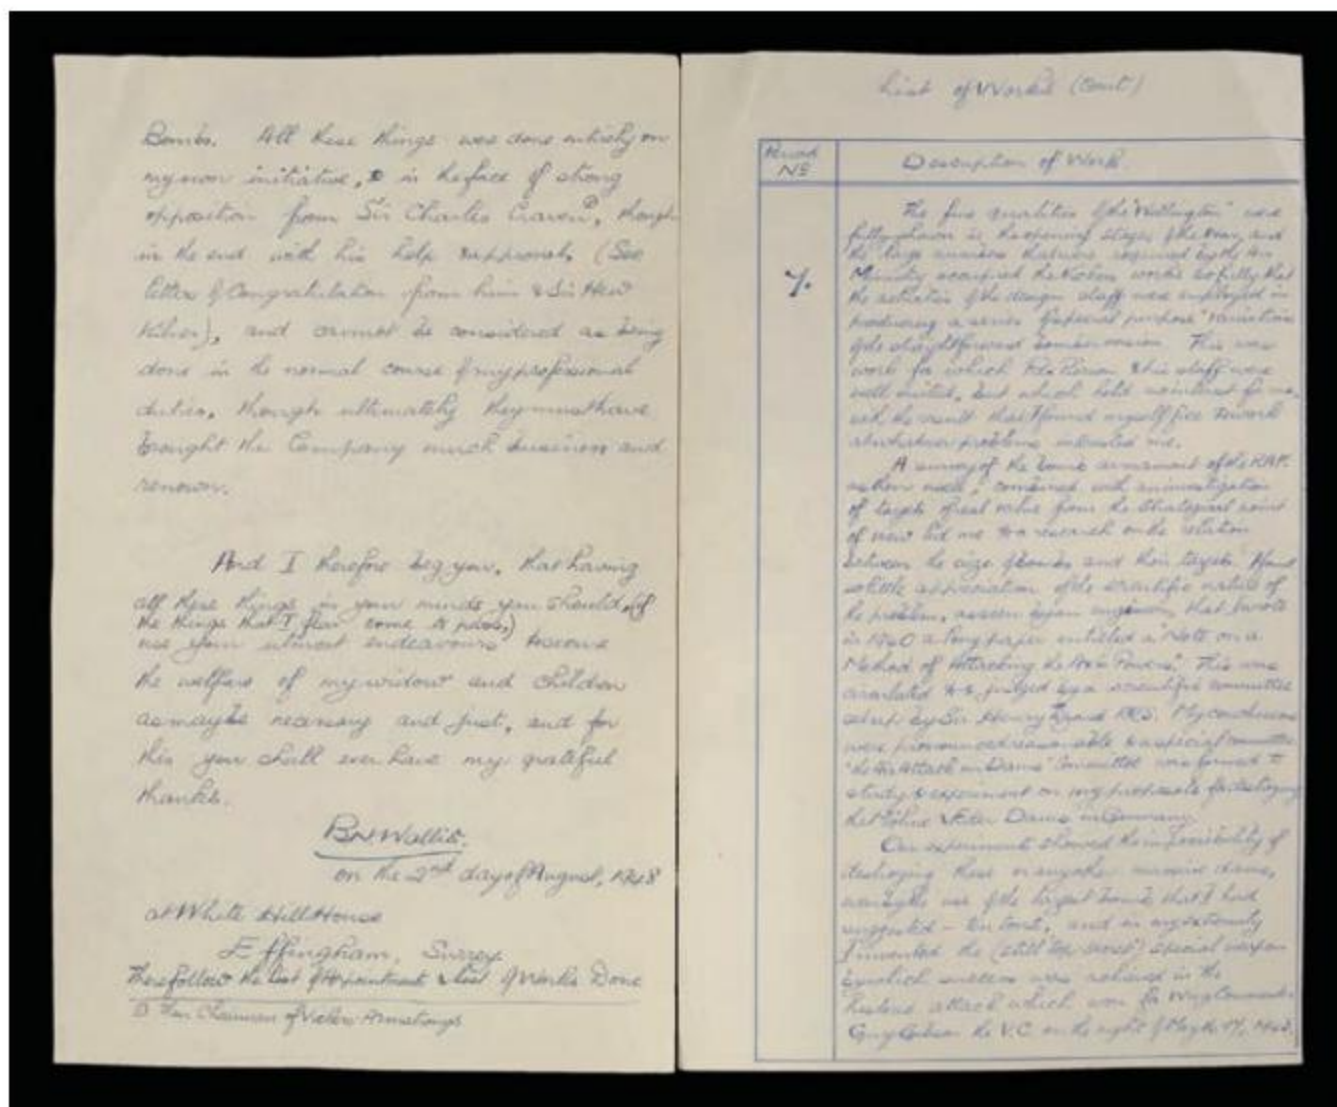 Bombs. All these things were done entirely on
my own initiative, & in the face of strong
opposition from Sir Charles Craven①, though
in the end with his help & approval. (See
letter of Congratulation from him & Sir Hew
Kilner), and cannot be considered as being
done in the normal course of my professional
duties, though ultimately they must have
brought the Company much business and
renown.
And I therefore beg you, that having
all these things in your minds you should, (if
the things that I fear come to pass,)
use your utmost endeavours to secure
the welfare of my widow and children
as may be necessary and just, and for
this you shall ever have my grateful
thanks.
BNWallis.
on the 2nd day of August, 1948
at White Hill House
Effingham, Surrey
There follow the list of Appointments & list of Works Done
① Then Chairman of Vickers-Armstrongs
List of Works (Cont)
Period
No
Description of Work.
7.
The fine qualities of the "Wellington" were
fully shown in the opening stages of the War, and
the large numbers that were required by the Air
Ministry occupied the Vickers works so fully that
the activities of the design staff were employed in
producing a series of special purpose variations
of the straightforward bomber version. This was
work for which Rex Pierson & his staff were
well suited, but which held no interest for me,
with the result that I found myself free to work
at whatever problems interested me.
A survey of the bomb armament of the RAF.
as then used, combined with an investigation
of targets of real value from the strategical point
of view led me to a research on the relation
between the size of bombs and their targets.
so little appreciation of the scientific nature of
the problem, as seen by an engineer, that I wrote
in 1940 a long paper entitled a "Note on a
Method of Attacking the Axis Powers". This was
circulated to & judged by a scientific committee
set up by Sir Henry Tizard FRS. My conclusions
were pronounced reasonable & a special committee
"the Air Attack on Dams" Committee was formed to
study & experiment on my proposals for destroying
the Möhne & Eder Dams in Germany.
Our experiments showed the impossibility of
destroying these or any other massive dams,
even by the use of the largest bomb that I had
suggested – ten tons, and in my extremity
I invented the (still top secret) special weapon
by which success was achieved in the
historic attack which won for Wing Command.
Guy Gibson the V.C. on the night of May the 17, 1943.